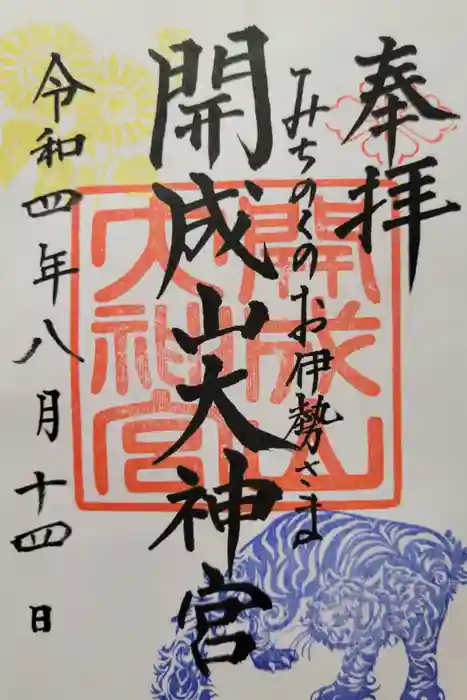 奉拝
みちのくのお伊勢さま
開成山大神宮
令和四年八月十四日
開成山
大神宮